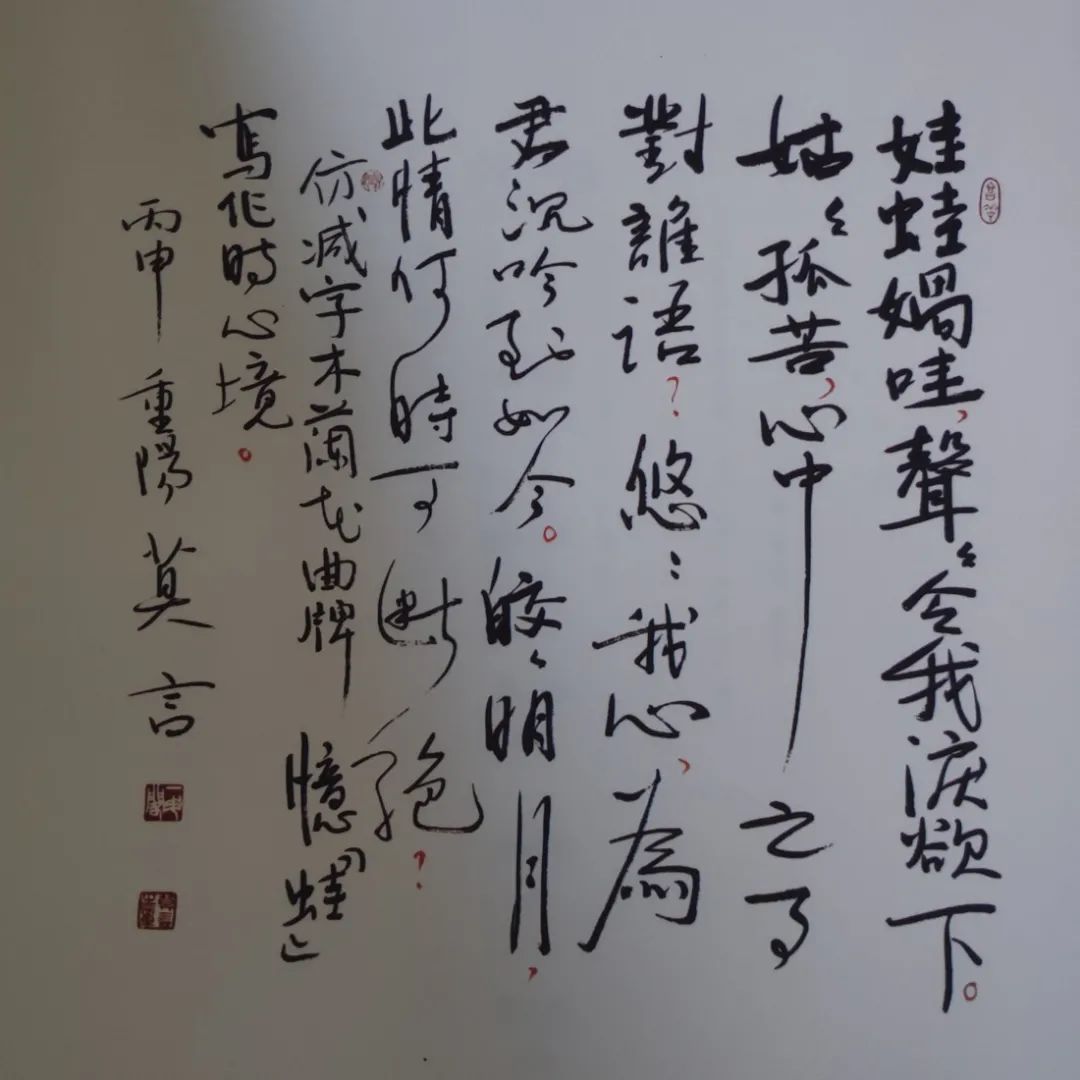 娃蛙媧哇，聲々令我淚欲下。
姑々孤苦，心中之事
對誰語？悠々我心，為
君沉吟到如今。皎々明月，
此情何時可斷絕？
仿减字木蘭花曲牌 憶『蛙』
寫作時心境。
丙申重陽 莫言